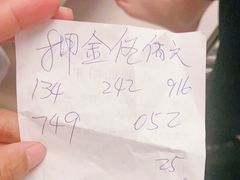 押金伍佰元
134 242 916
749 052
25